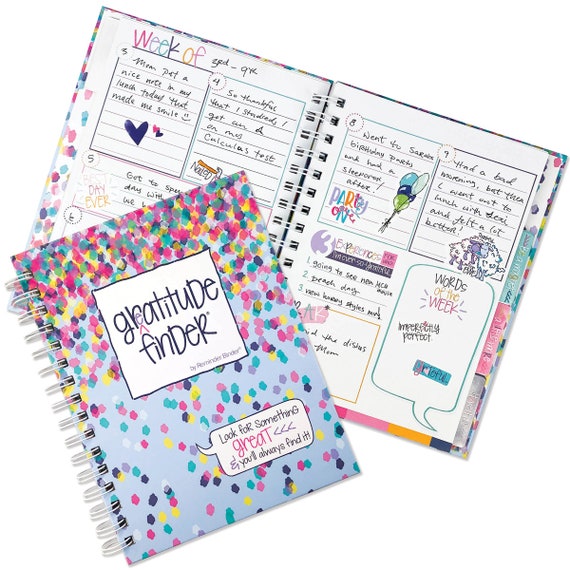 Week of 3rd - 9th
3 Mom put a
nice note in my
lunch today that
made me smile
4 So thankful
that I studied! I
got an A
on my
Calculus test
Notes
5
BEST
DAY
EVER
Got to spe
day with
6
8 Went to Sarahs
birthday party
and had a
sleepover
after!
PARTY
ON
9 Had a bad
morning, but then
I went out to
lunch with
and felt a lot
better!
3 Experiences
I'm ever-so-grateful
1 going to see new
movie
2 beach day
3 new luxury styles
did the dishes
Mom
WORDS
OF the
WEEK
imperfectly
perfect
grateful
greatitude
finder®
by Reminder Binder®
Look for something
great <<<
& you'll always find it!